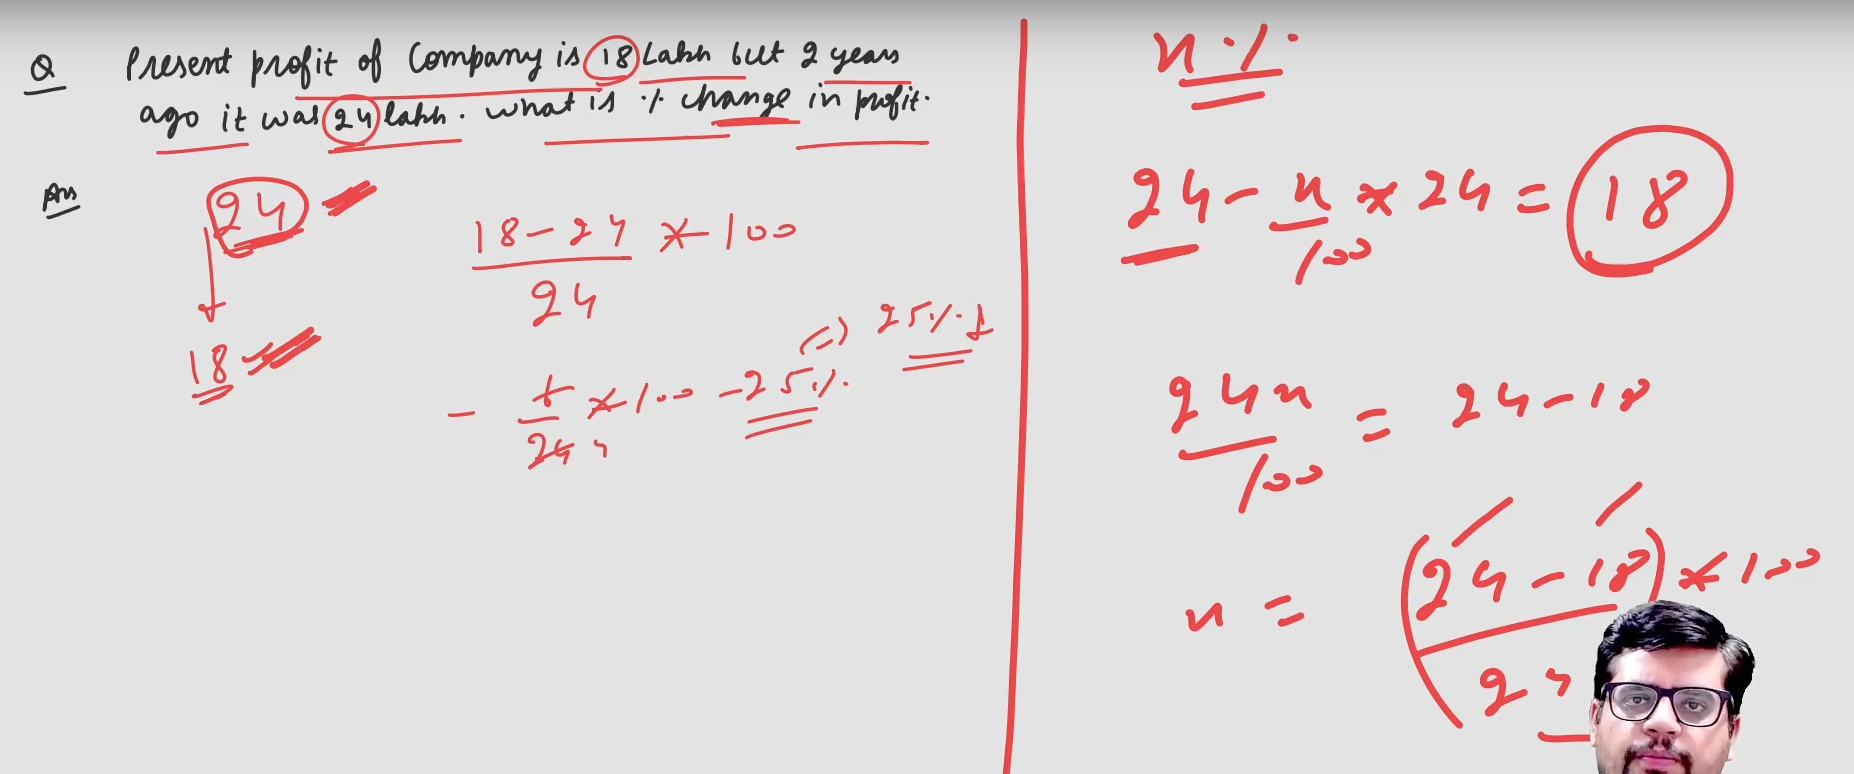 Q Present profit of Company is 18 Lakh but 2 years
ago it was 24 lakh. what is % change in profit.
Ans
24
18
18-24 * 100
24
- 6 * 100 -25%
24 4
(-) 25% ↓
x %
24 - x * 24 = 18
100
24x = 24-18
100
x = (24-18) * 100
24